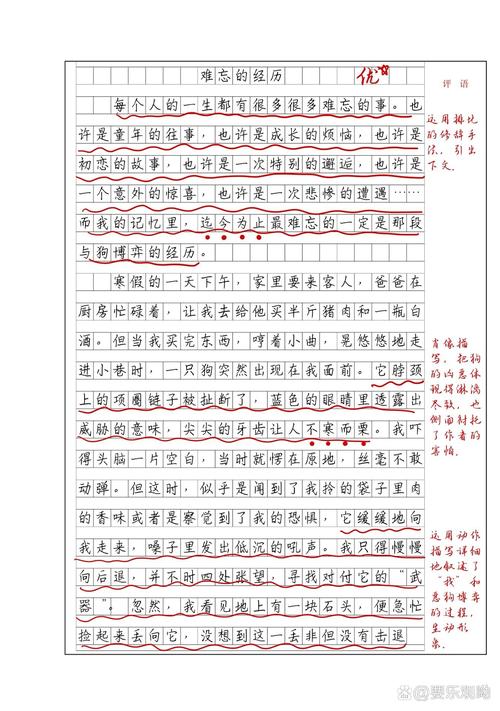 难忘的经历
优
评语
每个人的一生都有很多很多难忘的事。也
许是童年的往事，也许是成长的烦恼，也许是
初恋的故事，也许是一次特别的邂逅，也许是
一个意外的惊喜，也许是一次悲惨的遭遇……
而我的记忆里，迄今为止最难忘的一定是那段
与狗博弈的经历。
运用排比
的修辞手
法，引出
下文。
寒假的一天下午，家里要来客人，爸爸在
厨房忙碌着，让我去给他买半斤猪肉和一瓶白
酒。但当我买完东西，哼着小曲，晃悠悠地走
进小巷时，一只狗突然出现在我面前。它脖颈
上的项圈链子被扯断了，蓝色的眼睛里透露出
威胁的意味，尖尖的牙齿让人不寒而栗。我吓
得头脑一片空白，当时就愣在原地，丝毫不敢
动弹。但这时，似乎是闻到了我拎的袋子里肉
的香味或者是察觉到了我的恐惧，它缓缓地向
我走来，嗓子里发出低沉的吼声。我只得慢慢
向后退，并不时四处张望，寻找对付它的“武
器”。忽然，我看见地上有一块石头，便急忙
捡起来丢向它，没想到这一丢非但没有击退
肖像描
写，把狗
的凶恶体
现得淋漓
尽致，也
侧面衬托
了作者的
害怕。
运用动作
描写详细
地叙述了
“我”和
恶狗博弈
的过程，
生动形
象。